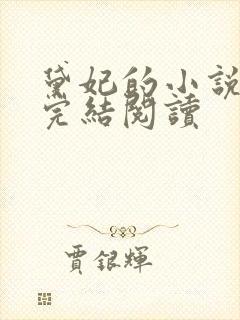 黛妃的小說
完結閱讀
賈銀輝